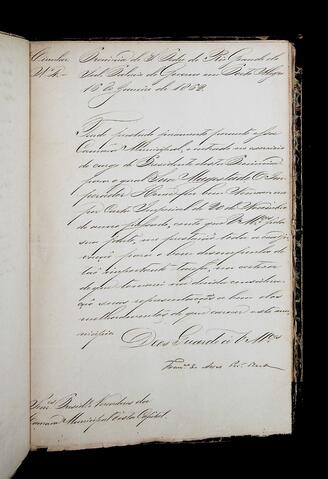 Circular Provincia de S. Pedro do Rio Grande do
N.º 4.- Sul. Palacio do Governo em Porto Alegre
16 de Janeiro de 1852.
Tendo prestado juramento perante essa
Camara Municipal, e entrado no exercicio
do cargo de Presidente desta Provincia
para o qual Sua Magestade O Im-
perador Houve por bem Nomear-me
por Carta Imperial de 20 de
do anno passado, conto que V. M.ces pela
sua parte, me prestarão toda a coadju-
vação para o bom desempenho de
tão importante tarefa, na certeza
de que tomarei na devida considera-
ção suas representações a bem dos
melhoramentos de que carecer esse mu-
nicipio.
Deos Guarde a V. M.ces
Snr.es Presid.e e Vereadores da
Camara Municipal desta Capital.